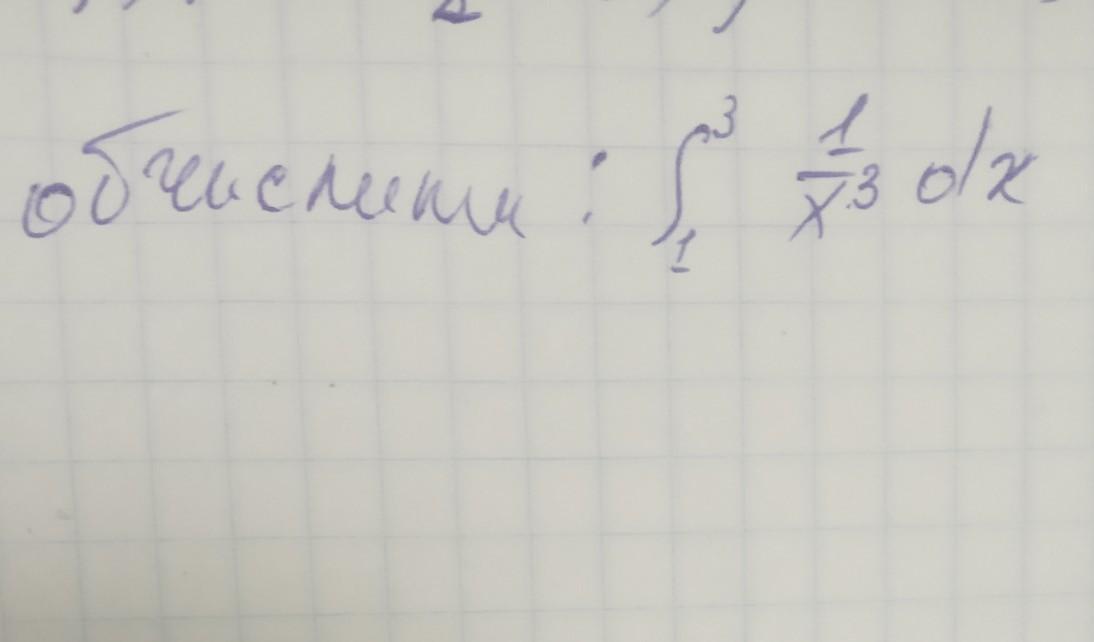 обчислити : ∫₁³ 1/x³ dx